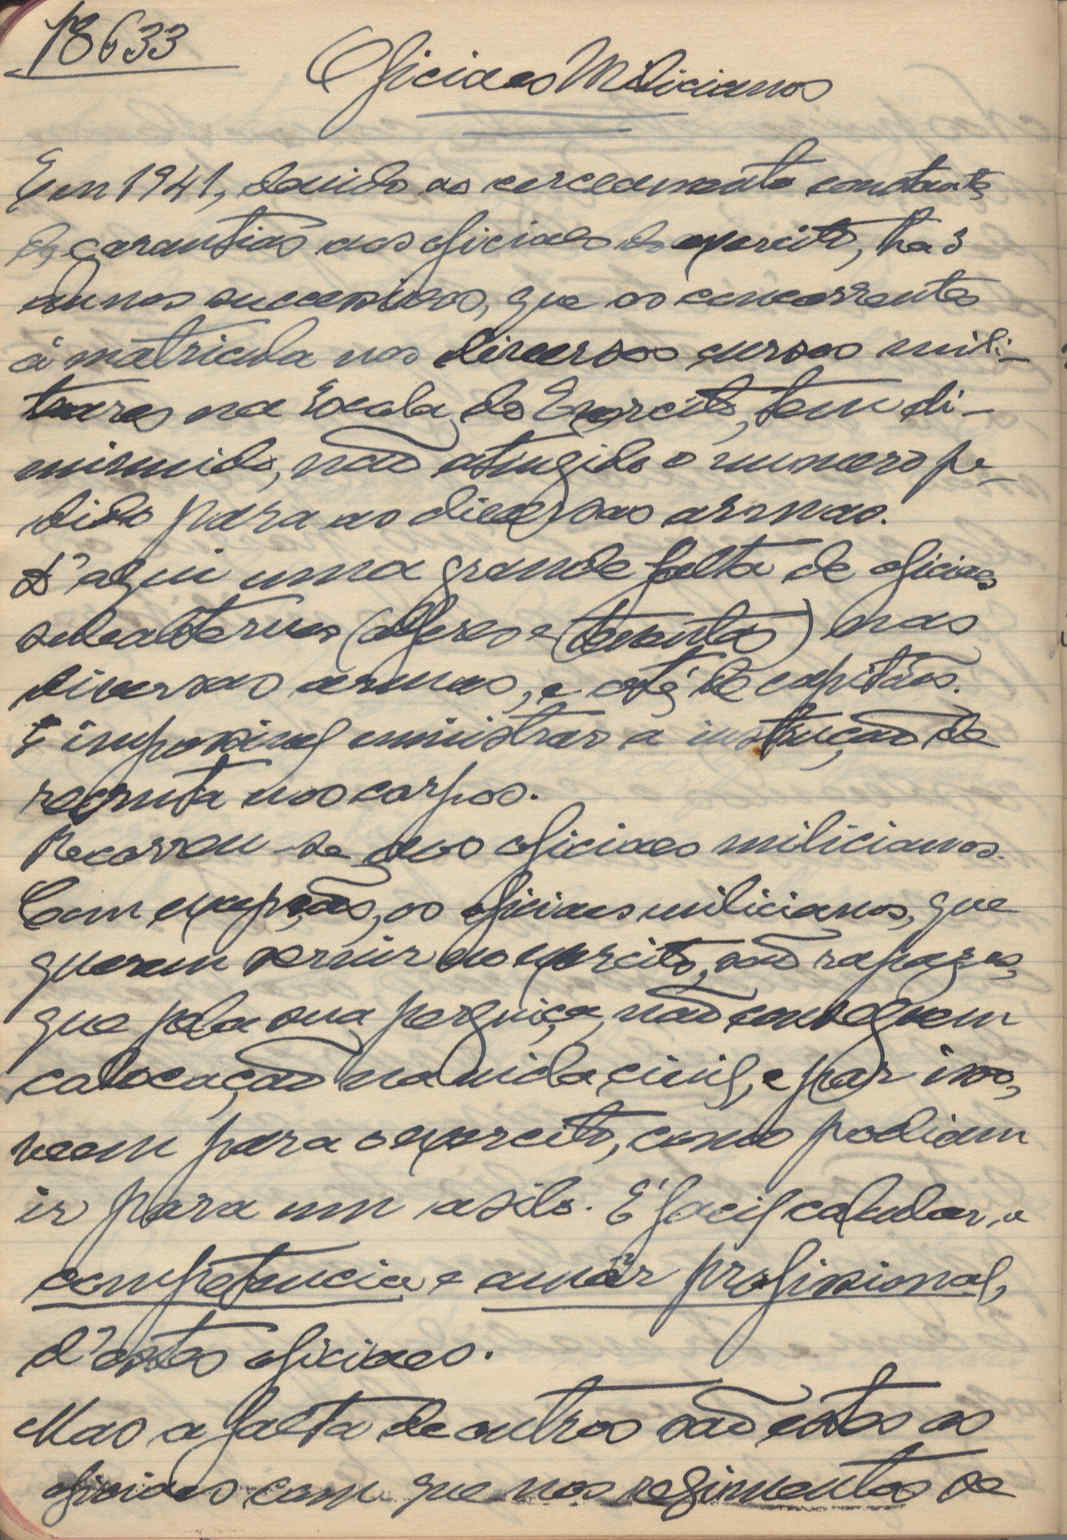 18633
Oficiaes Milicianos
Em 1941, devido ao cerceamento constante
de garantias aos oficiaes do exercito, ha 3
annos successivos, que os concorrentes
á matricula nos diversos cursos mili-
tares na Escola do Exercito, tem di-
minuido, não atingido o numero pe-
dido para as diversas armas.
D'aqui uma grande falta de oficiaes
subalternos (alferes e tenentes) nas
diversas armas, e até de capitães.
É impossivel ministrar a instrução de
recruta nos corpos.
Recorreu-se aos oficiaes milicianos.
Com excepções, os oficiaes milicianos, que
querem servir no exercito, são rapazes,
que pela sua perguiça, não conseguem
colocação na vida civil, e por isso,
veem para o exercito, como podiam
ir para um asilo. É facil calcular, a
competencia e amôr profissional,
d'estes oficiaes.
Mas a falta de outros são estes os
oficiaes com que nos regimentos se